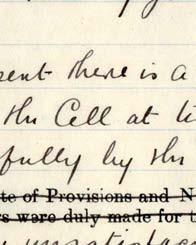 sent there is a
the Cell at
fully by the
te of Provisions and N
rs were duly made for t